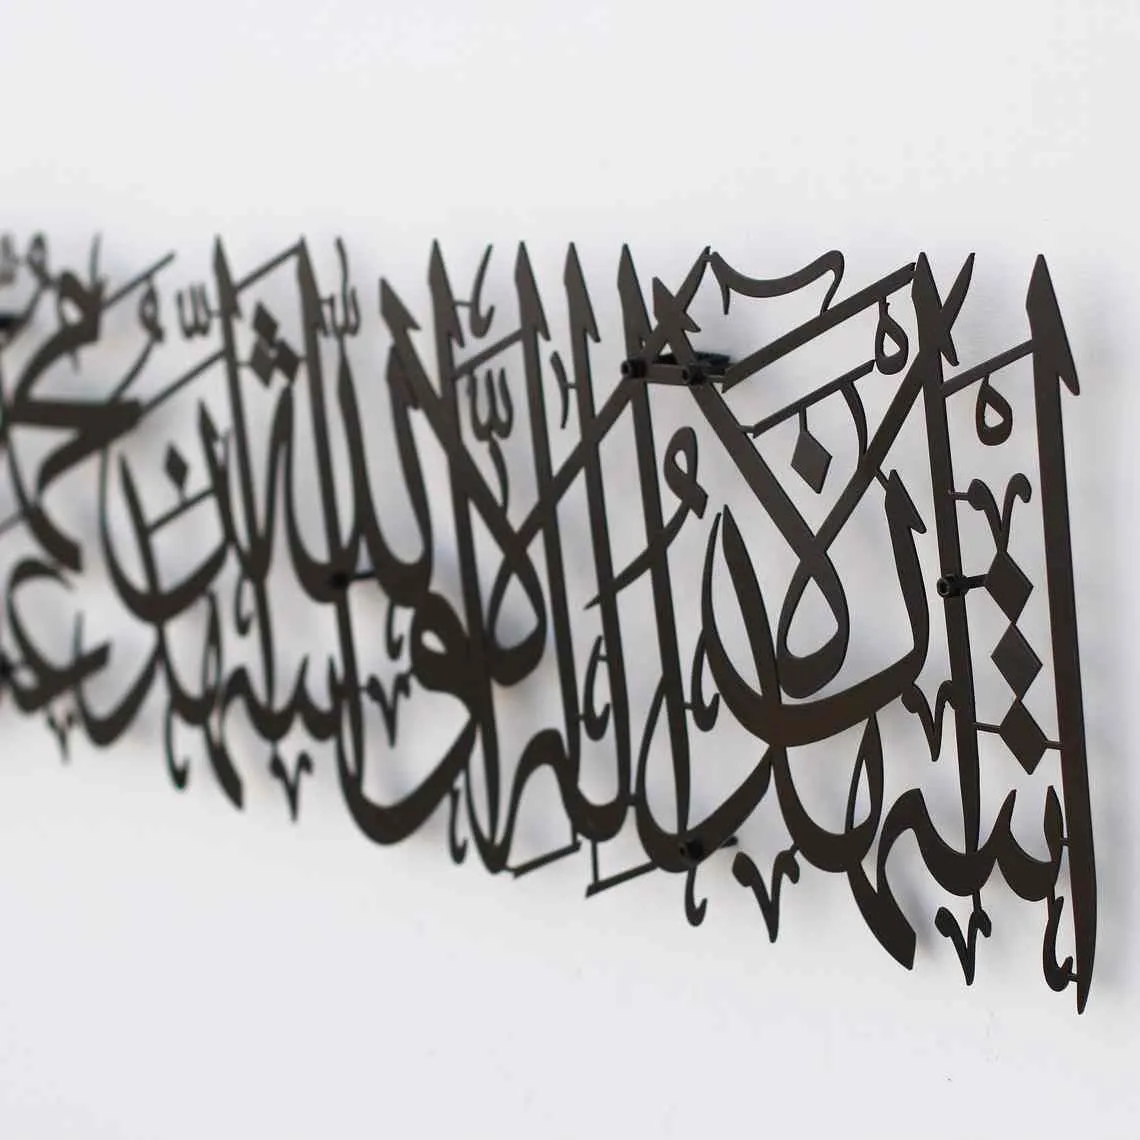 أشهد أن لا إله إلا الله وأشهد أن